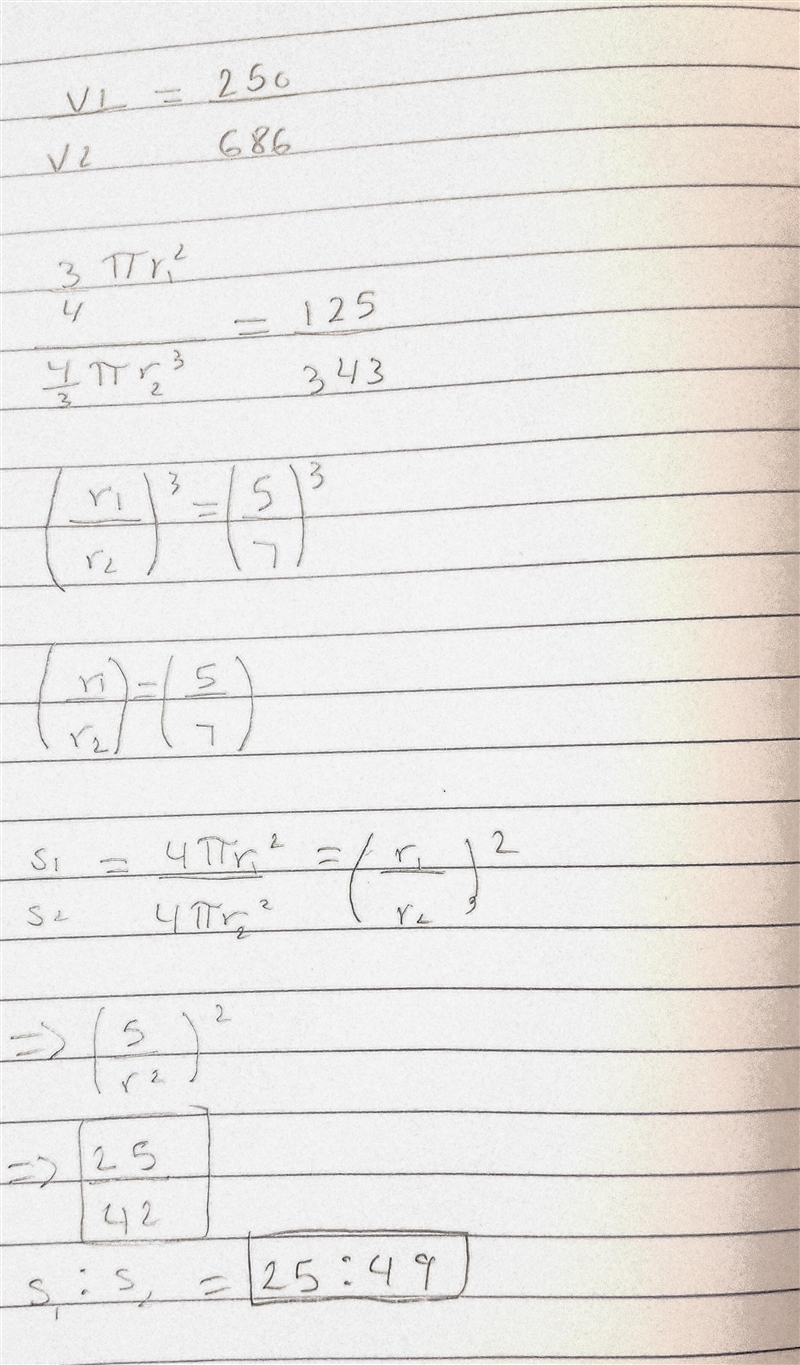 V1/V2 = 250/686
(3/4 πr₁²)/(4/3 πr₂³) = 125/343
(r₁/r₂)³ = (5/7)³
(r₁/r₂) = (5/7)
S₁/S₂ = 4πr₁²/4πr₂² = (r₁/r₂)²
=> (5/r2)²
=> 25/42
S₁ : S₂ = 25:49